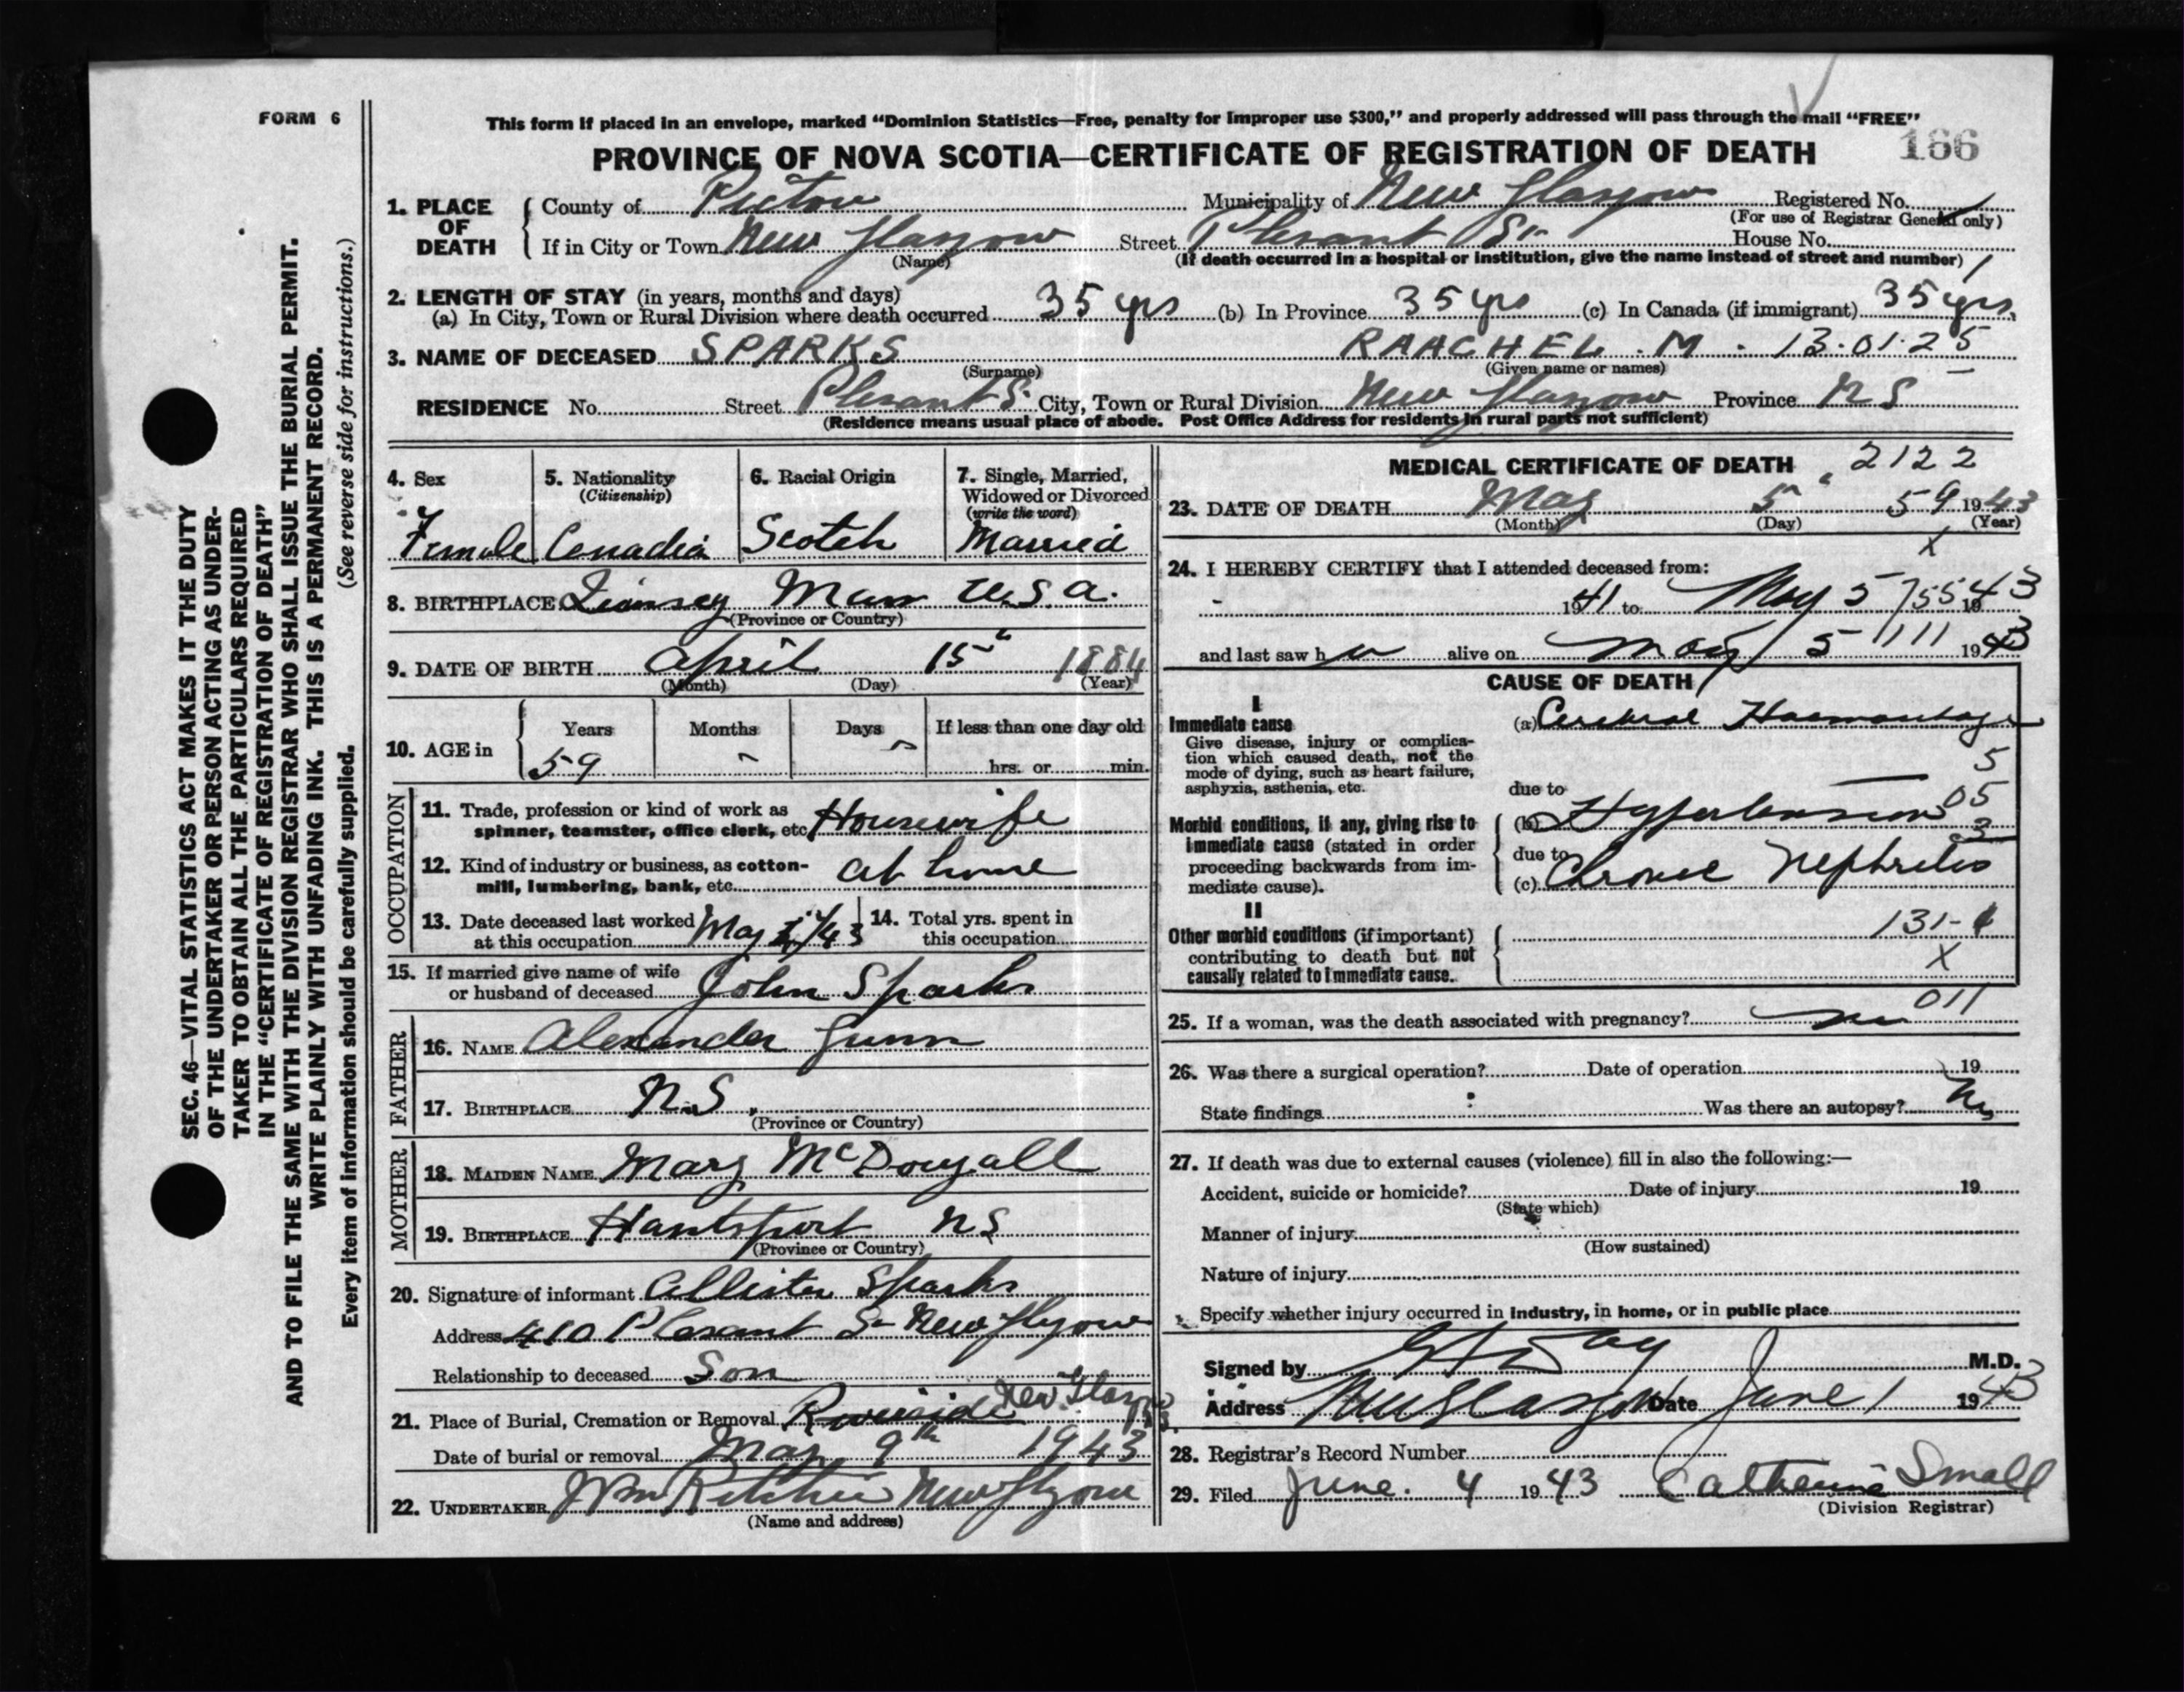 FORM 6
This form if placed in an envelope, marked “Dominion Statistics—Free, penalty for improper use $300,” and properly addressed will pass through the mail “FREE”
PROVINCE OF NOVA SCOTIA—CERTIFICATE OF REGISTRATION OF DEATH 166
1. PLACE OF DEATH
County of Pictou Municipality of New Glasgow Registered No.
(For use of Registrar General only)
If in City or Town New Glasgow Street Plesant St House No.
(Name) (If death occurred in a hospital or institution, give the name instead of street and number)
2. LENGTH OF STAY (in years, months and days)
(a) In City, Town or Rural Division where death occurred 35 yrs (b) In Province 35 yrs (c) In Canada (if immigrant) 35 yrs.
3. NAME OF DECEASED SPARKS RAACHEL . M . 13.01.25
(Surname) (Given name or names)
RESIDENCE No. Street Plesant S. City, Town or Rural Division New Glasgow Province N S
(Residence means usual place of abode. Post Office Address for residents in rural parts not sufficient)
4. Sex
Female
5. Nationality
(Citizenship)
Canadia
6. Racial Origin
Scotch
7. Single, Married, Widowed or Divorced
(write the word)
Married
8. BIRTHPLACE Mass U.S.A.
(Province or Country)
9. DATE OF BIRTH April 15 1884
(Month) (Day) (Year)
10. AGE in
Years Months Days If less than one day old
59 - - hrs. or min.
OCCUPATION
11. Trade, profession or kind of work as
spinner, teamster, office clerk, etc. Housewife
12. Kind of industry or business, as cotton-
mill, lumbering, bank, etc. at home
13. Date deceased last worked
at this occupation May /43
14. Total yrs. spent in
this occupation
15. If married give name of wife
or husband of deceased John Sparks
FATHER
16. NAME Alexander Gunn
17. BIRTHPLACE N.S.
(Province or Country)
MOTHER
18. MAIDEN NAME Mary McDougall
19. BIRTHPLACE Hantsport N S
(Province or Country)
20. Signature of informant Allister Sparks
Address 410 Plesant St New Glasgow
Relationship to deceased Son
21. Place of Burial, Cremation or Removal Riverside New Glasgow
Date of burial or removal May 9th 1943
22. UNDERTAKER Wm Ritchie New Glasgow
(Name and address)
MEDICAL CERTIFICATE OF DEATH 2122
23. DATE OF DEATH May 5 59 1943
(Month) (Day) (Year)
X
24. I HEREBY CERTIFY that I attended deceased from:
- 1941 to May 5 755 1943
and last saw h er alive on May 5 111 1943
CAUSE OF DEATH
I
Immediate cause
Give disease, injury or complica-
tion which caused death, not the
mode of dying, such as heart failure,
asphyxia, asthenia, etc.
(a) Cerebral Haemorrhage
5
due to
05
Morbid conditions, if any, giving rise to
immediate cause (stated in order
proceeding backwards from im-
mediate cause).
(b) Hypertension
3
due to
(c) Chronic Nephritis
II
Other morbid conditions (if important)
contributing to death but not
causally related to immediate cause.
131-1
X
011
25. If a woman, was the death associated with pregnancy? no
26. Was there a surgical operation? Date of operation 19
State findings Was there an autopsy? No
27. If death was due to external causes (violence) fill in also the following:—
Accident, suicide or homicide? Date of injury 19
(State which)
Manner of injury
(How sustained)
Nature of injury
Specify whether injury occurred in industry, in home, or in public place
Signed by M.D.
Address New Glasgow Date June 1 1943
28. Registrar's Record Number
29. Filed June. 4 1943 Catherine Small
(Division Registrar)
SEC. 46—VITAL STATISTICS ACT MAKES IT THE DUTY
OF THE UNDERTAKER OR PERSON ACTING AS UNDER-
TAKER TO OBTAIN ALL THE PARTICULARS REQUIRED
IN THE “CERTIFICATE OF REGISTRATION OF DEATH”
AND TO FILE THE SAME WITH THE DIVISION REGISTRAR WHO SHALL ISSUE THE BURIAL PERMIT.
WRITE PLAINLY WITH UNFADING INK. THIS IS A PERMANENT RECORD.
Every item of information should be carefully supplied. (See reverse side for instructions.)